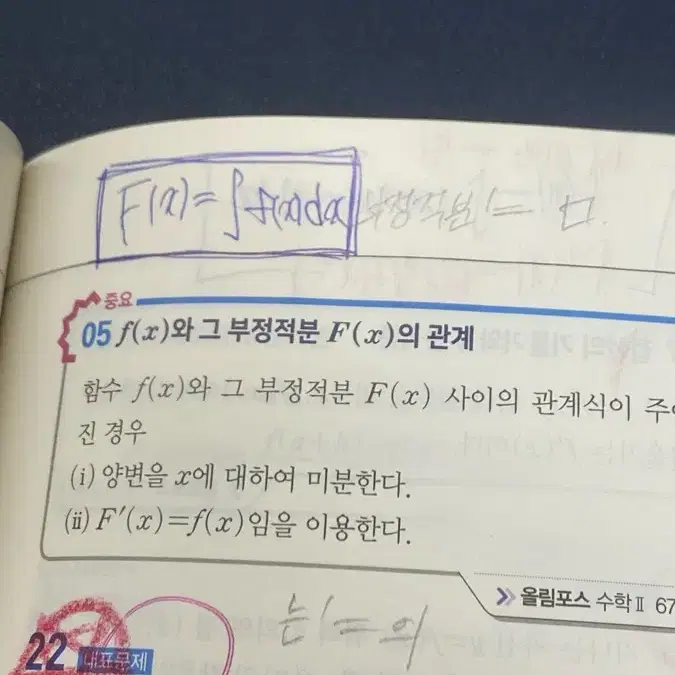 F(x)=∫f(x)dx 부정적분 는 = ㅁ.
중요
05 f(x)와 그 부정적분 F(x)의 관계
함수 f(x)와 그 부정적분 F(x) 사이의 관계식이 주어
진 경우
(i) 양변을 x에 대하여 미분한다.
(ii) F′(x)=f(x)임을 이용한다.
올림포스 수학Ⅱ 67
22 대표문제